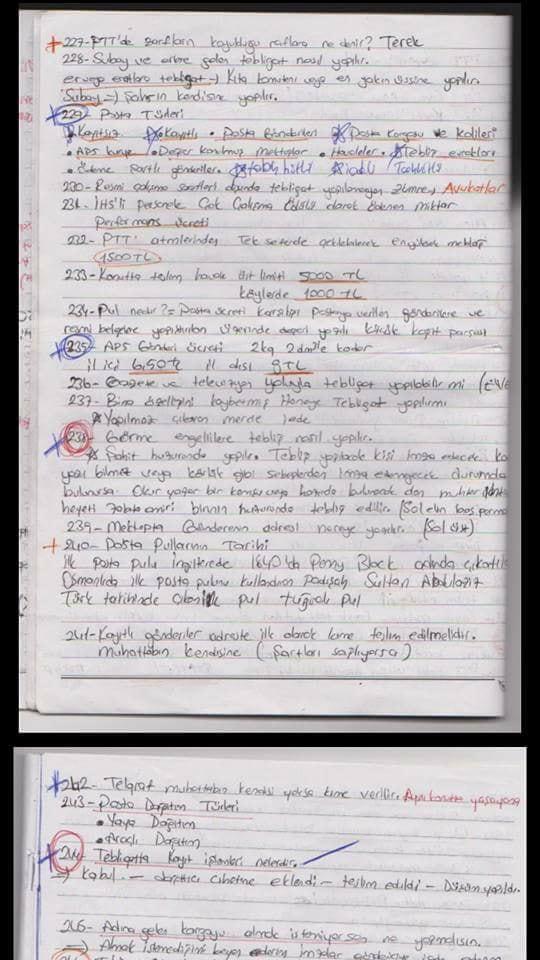 227- PTT'de zarfların koyulduğu raflara ne denir? Terek
228- Subay ve erlere gelen tebligat nasıl yapılır.
er veya eratlara tebligat → Kıta komutanı veya en yakın üssüne yapılır.
Subay → Şahsın kendisine yapılır.
229- Posta Türleri
Kayıtsız Kayıtlı • Posta Gönderileri Posta Kargosu ve Kolileri
• APS kurye • Değer konulmuş mektuplar • Havaleler • Tebliğ evrakları
• Ödeme Şartlı gönderiler. Taahhütlü
230- Resmi çalışma saatleri dışında tebligat yapılamayan zümre, Avukatlar
231. İHS'li Personele Çok Çalışma Ödülü olarak ödenen miktar
Performans ücreti
232- PTT' atmlerinden Tek seferde çekilebilecek en yüksek meblağ
1500 TL
233- Konutta teslim havale üst limiti 5000 TL
köylerde 1000 TL
234- Pul nedir? = Posta ücreti karşılığı Postaya verilen gönderilere ve
resmi belgelere yapıştırılan üzerinde değeri yazılı küçük kağıt parçası
235- APS Gönderi ücreti 2kg 2dm³'e kadar
il içi 6,50 TL il dışı 9 TL
236- Gazete ve televizyon yoluyla tebligat yapılabilir mi
237- Bina özelliğini kaybetmiş Haneye Tebligat yapılır mı
Yapılmaz çıkaran merciye iade
238- Görme engellilere tebliğ nasıl yapılır.
Şahit huzurunda yapılır. Tebliğ yapılacak kişi imza edecek
yazı bilmez veya körlük gibi sebeplerden imza edemeyecek durumda
bulunursa. Okur yazar bir komşu veya hazırda bulunacak dan muhtar ihtiyar
heyeti zabıta amiri birinin huzurunda tebliğ edilir. (Sol elin baş parmağı
239- Mektupta Gönderenin adresi nereye yazılır. (Sol Üst)
240- Posta Pullarının Tarihi
İlk posta pulu İngilterede 1840'da Penny Black adında çıkartıldı
Osmanlıda ilk posta pulunu kullandıran Padişah Sultan Abdülaziz
Türk tarihinde çıkan ilk pul tuğralı pul
241- Kayıtlı gönderiler adreste ilk olarak kime teslim edilmelidir.
muhattabın kendisine (şartları sağlıyorsa)
242- Telgraf muhattabın kendisi yoksa kime verilir. Aynı konutta yaşayana
243- Posta Dağıtım Türleri
• Yaya Dağıtım
• Araçlı Dağıtım
244- Tebligatta Kayıt işlemleri nelerdir.
⇒ Kabul - dağıtıcı cihetine eklendi - teslim edildi - Düşüm yapıldı.
246- Adına gelen kargoyu almak istemiyorsan ne yapmalısın.
⇒ Almak istemediğini beyan